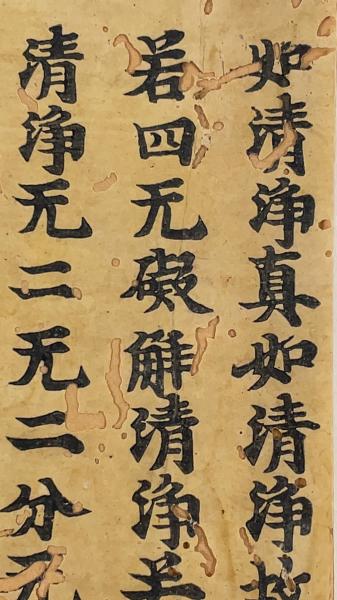 如清淨真如清淨故
若四无礙解清淨若
清淨无二无二分无